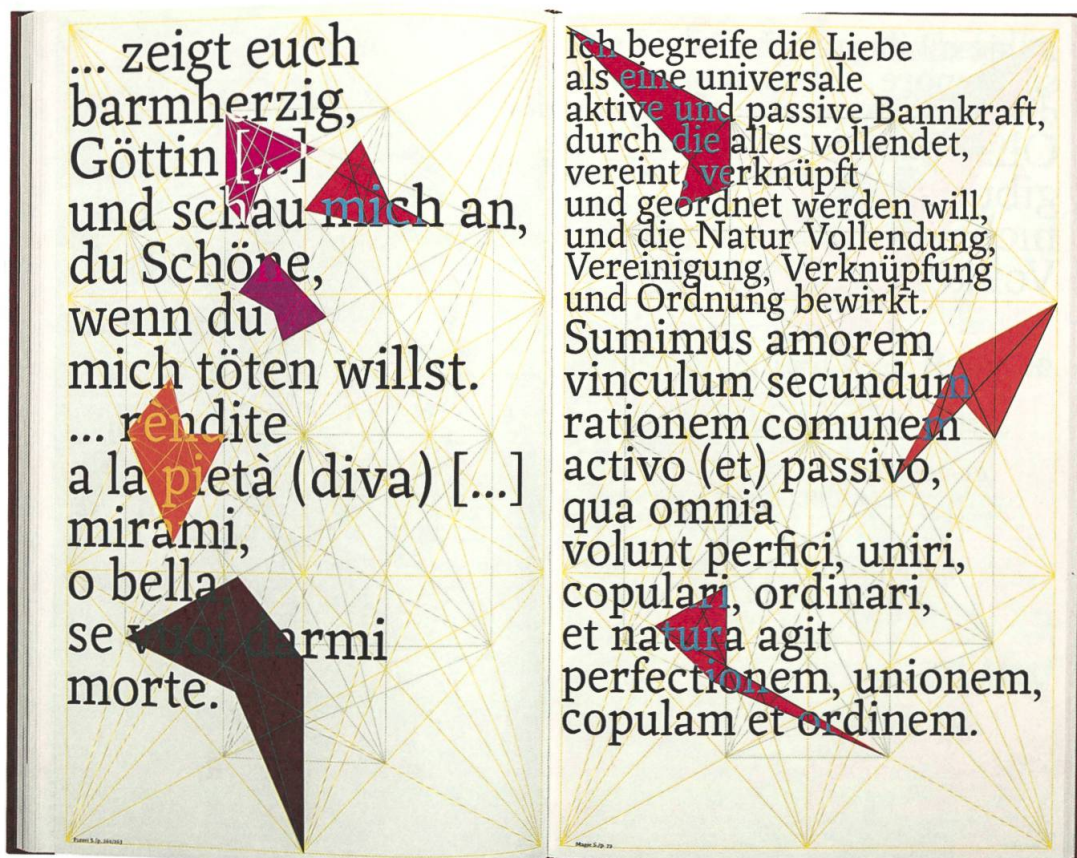 ... zeigt euch
barmherzig,
Göttin [...]
und schau mich an,
du Schöne,
wenn du
mich töten willst.
... rendite
a la pietà (diva) [...]
mirami,
o bella,
se vuoi darmi
morte.
Ich begreife die Liebe
als eine universale
aktive und passive Bannkraft,
durch die alles vollendet,
vereint, verknüpft
und geordnet werden will,
und die Natur Vollendung,
Vereinigung, Verknüpfung
und Ordnung bewirkt.
Sumimus amorem
vinculum secundum
rationem comunem
activo (et) passivo,
qua omnia
volunt perfici, uniri,
copulari, ordinari,
et natura agit
perfectionem, unionem,
copulam et ordinem.